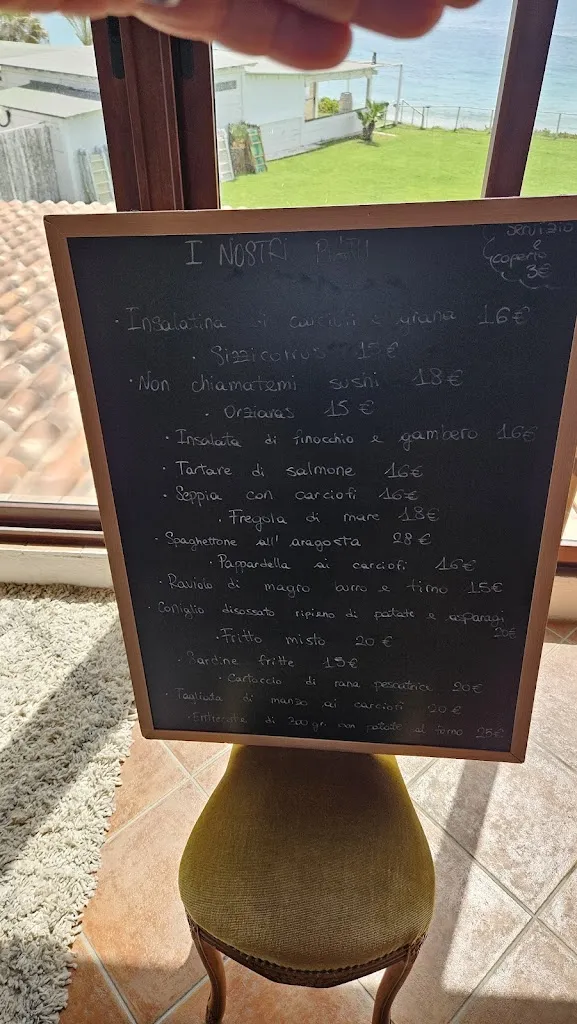 I NOSTRI PIATTI
Servizio
e
coperto
3€
· Insalatina di carciofi e grana 16€
· Sizzicorrus 15€
· Non chiamatemi sushi 18€
· Orziadas 15€
· Insalata di finocchio e gambero 16€
· Tartare di salmone 16€
· Seppia con carciofi 16€
· Fregola di mare 18€
· Spaghettone all' aragosta 28€
· Pappardella ai carciofi 16€
· Raviolo di magro burro e timo 15€
· Coniglio disossato ripieno di patate e asparagi
20€
· Fritto misto 20€
· Sardine fritte 15€
· Cartoccio di rana pescatrice 20€
· Tagliata di manzo ai carciofi 20€
· Entrecote di 300 gr con patate al forno 25€